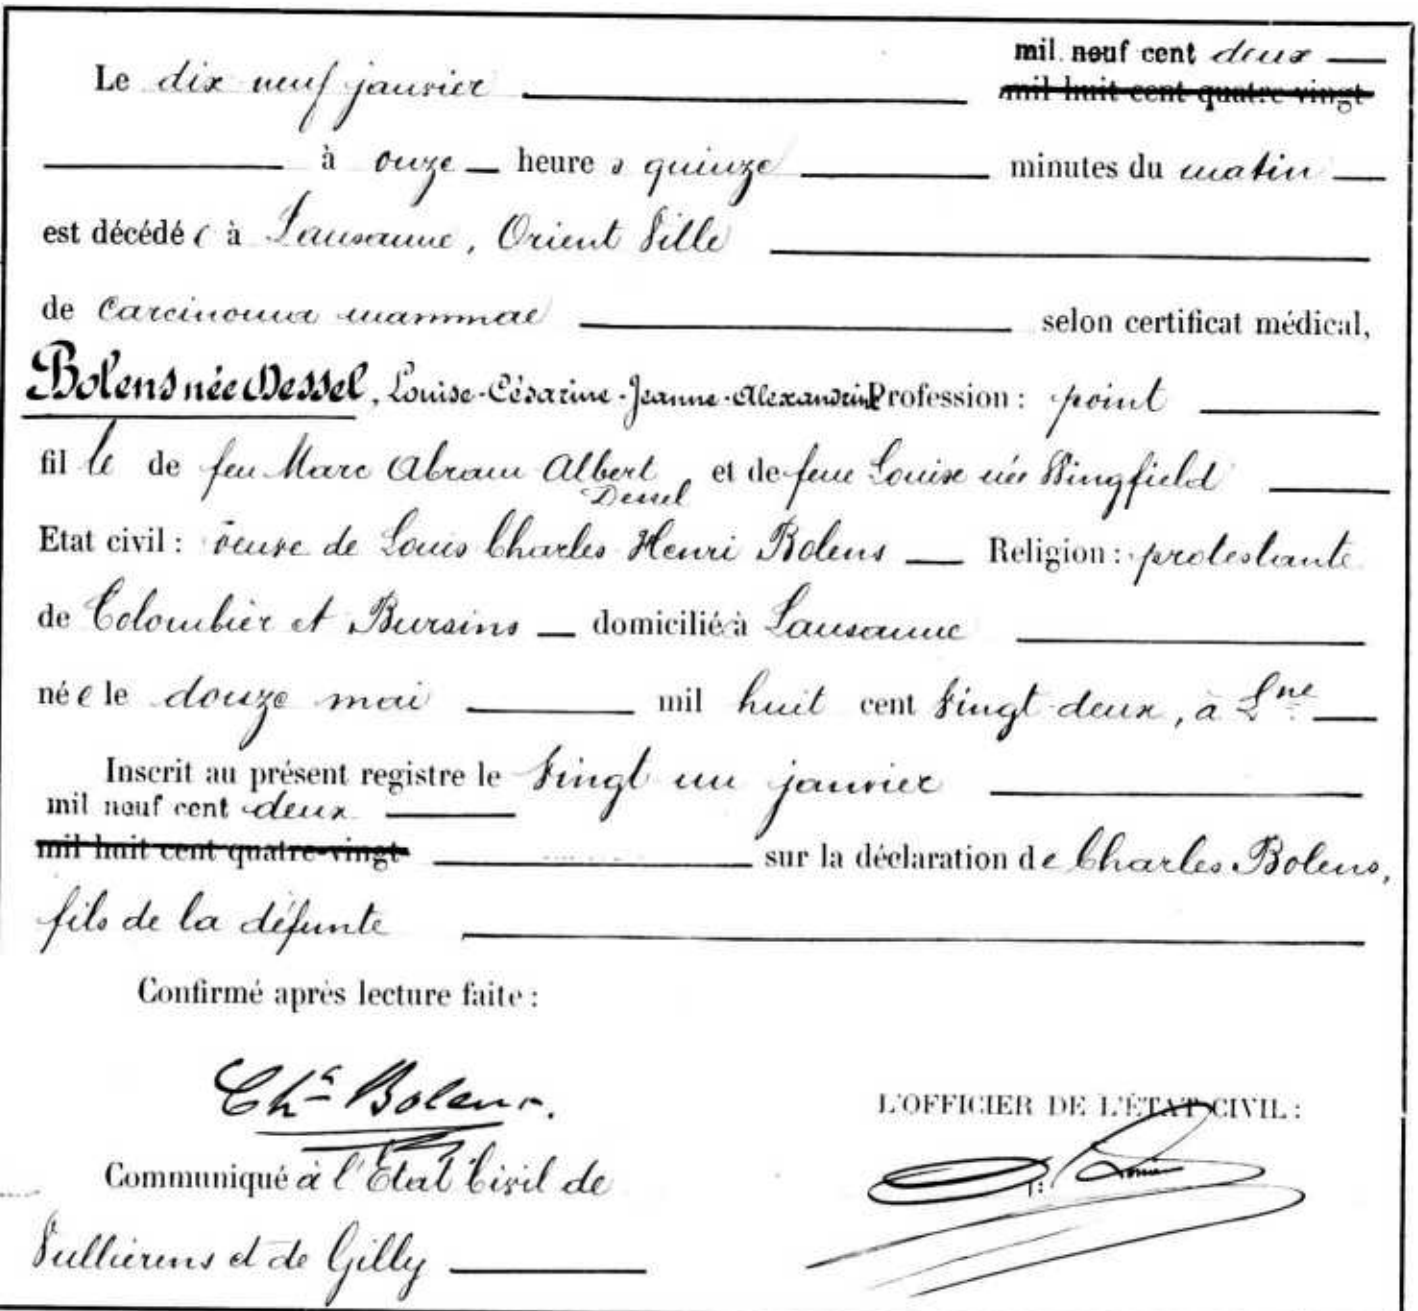 mil neuf cent deux
Le dix neuf janvier mil huit cent quatre-vingt
à onze heures quinze minutes du matin
est décédée à Lausanne, Orient Ville
de Carcinoma mammae selon certificat médical,
Bolens née Dessel, Louise-Césarine-Jeanne-Alexandrine Profession : point
fille de feu Marc Abram Albert et de feue Louise née Wingfield
Dessel
Etat civil : veuve de Louis Charles Henri Bolens Religion : protestante
de Colombier et Bursins domiciliée à Lausanne
née le douze mai mil huit cent vingt deux, à Lne
Inscrit au présent registre le vingt un janvier
mil neuf cent deux
mil huit cent quatre-vingt sur la déclaration de Charles Bolens,
fils de la défunte
Confirmé après lecture faite :
Chs Bolens.
L'OFFICIER DE L'ÉTAT CIVIL :
Communiqué à l'Etat Civil de
Vullierens et de Gilly